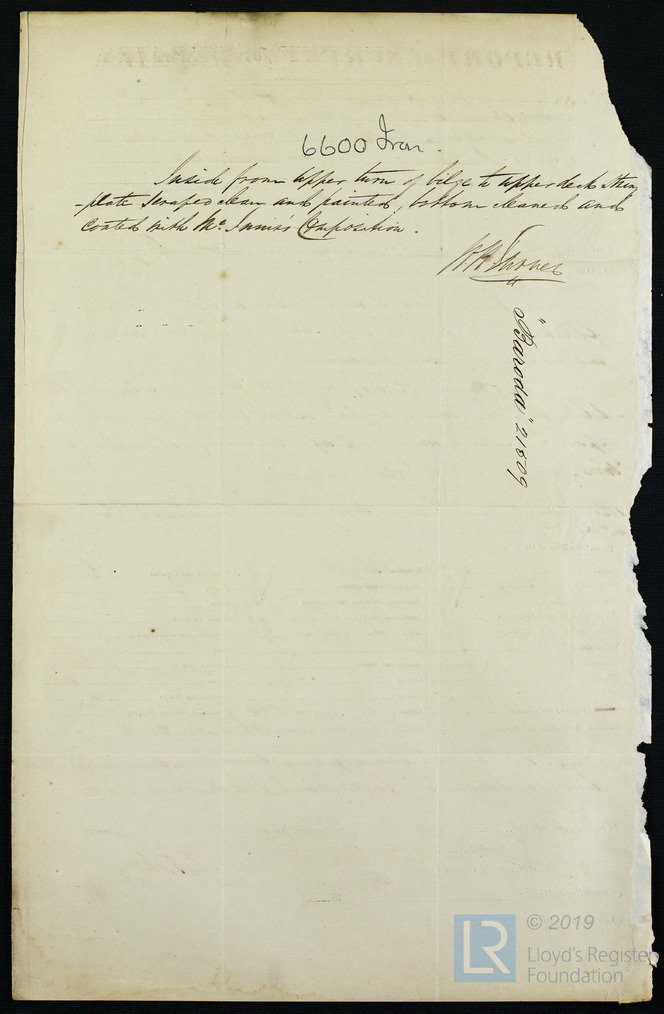 6600 Iron.
Inside from upper turn of bilge to upper deck string
-plate scraped clean and painted, bottom cleaned and
coated with Mc. Innis's Composition.
"Baroda" 21809
© 2019
Lloyd's Register
Foundation
LR